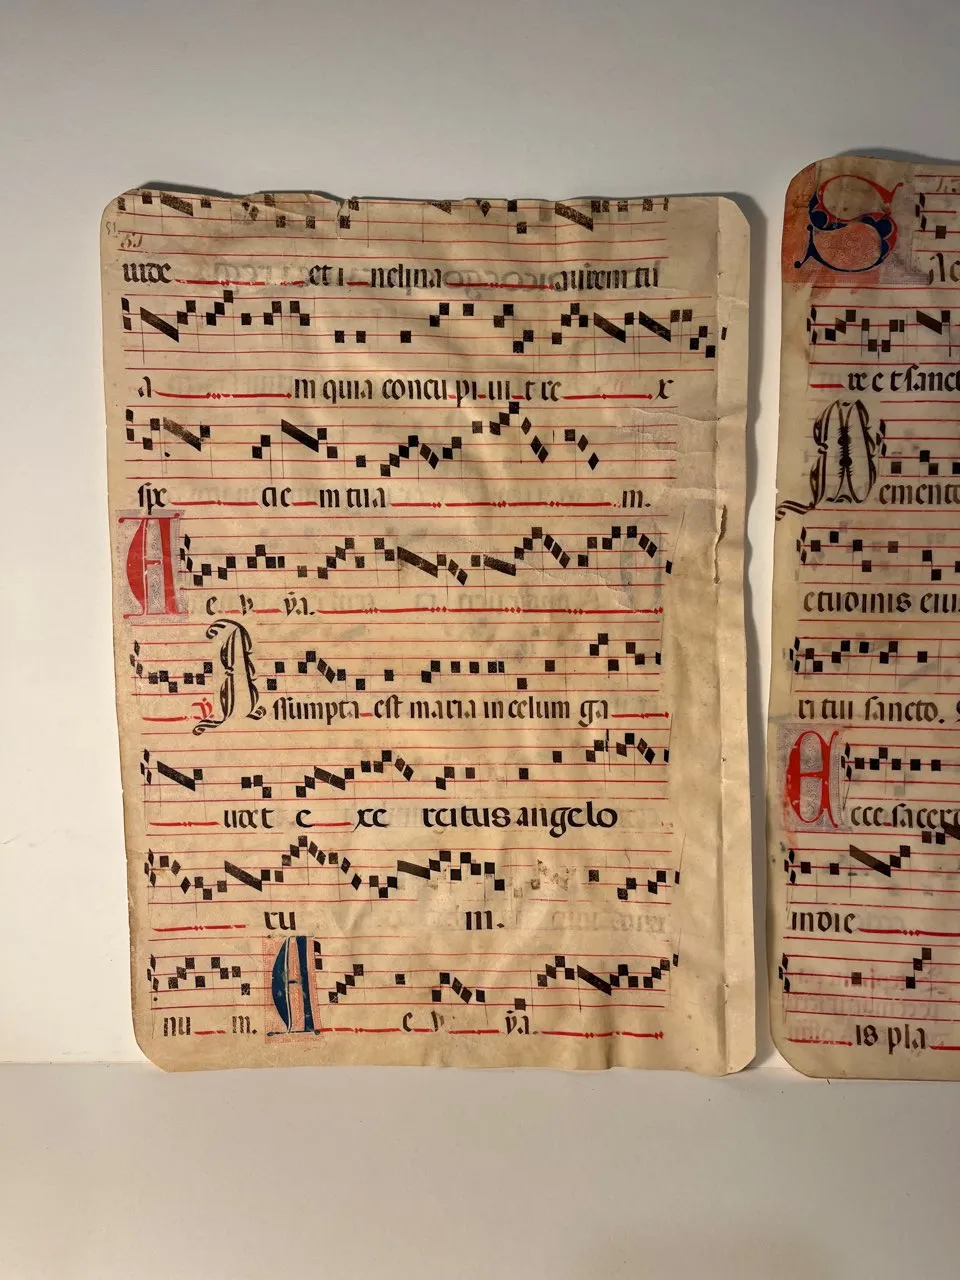 uide et i nclina aurem tu
a m quia concu pi uit re x
spe cie m tua m.
A e v ya.
℣. Assumpta est maria in celum ga
udet e xe rcitus angelo
ru m.
nu m. A e v ya.
S
re e t sanct
Memento
etudinis eiu
ri tui sancto.
Ecce sacer
in die
is pla